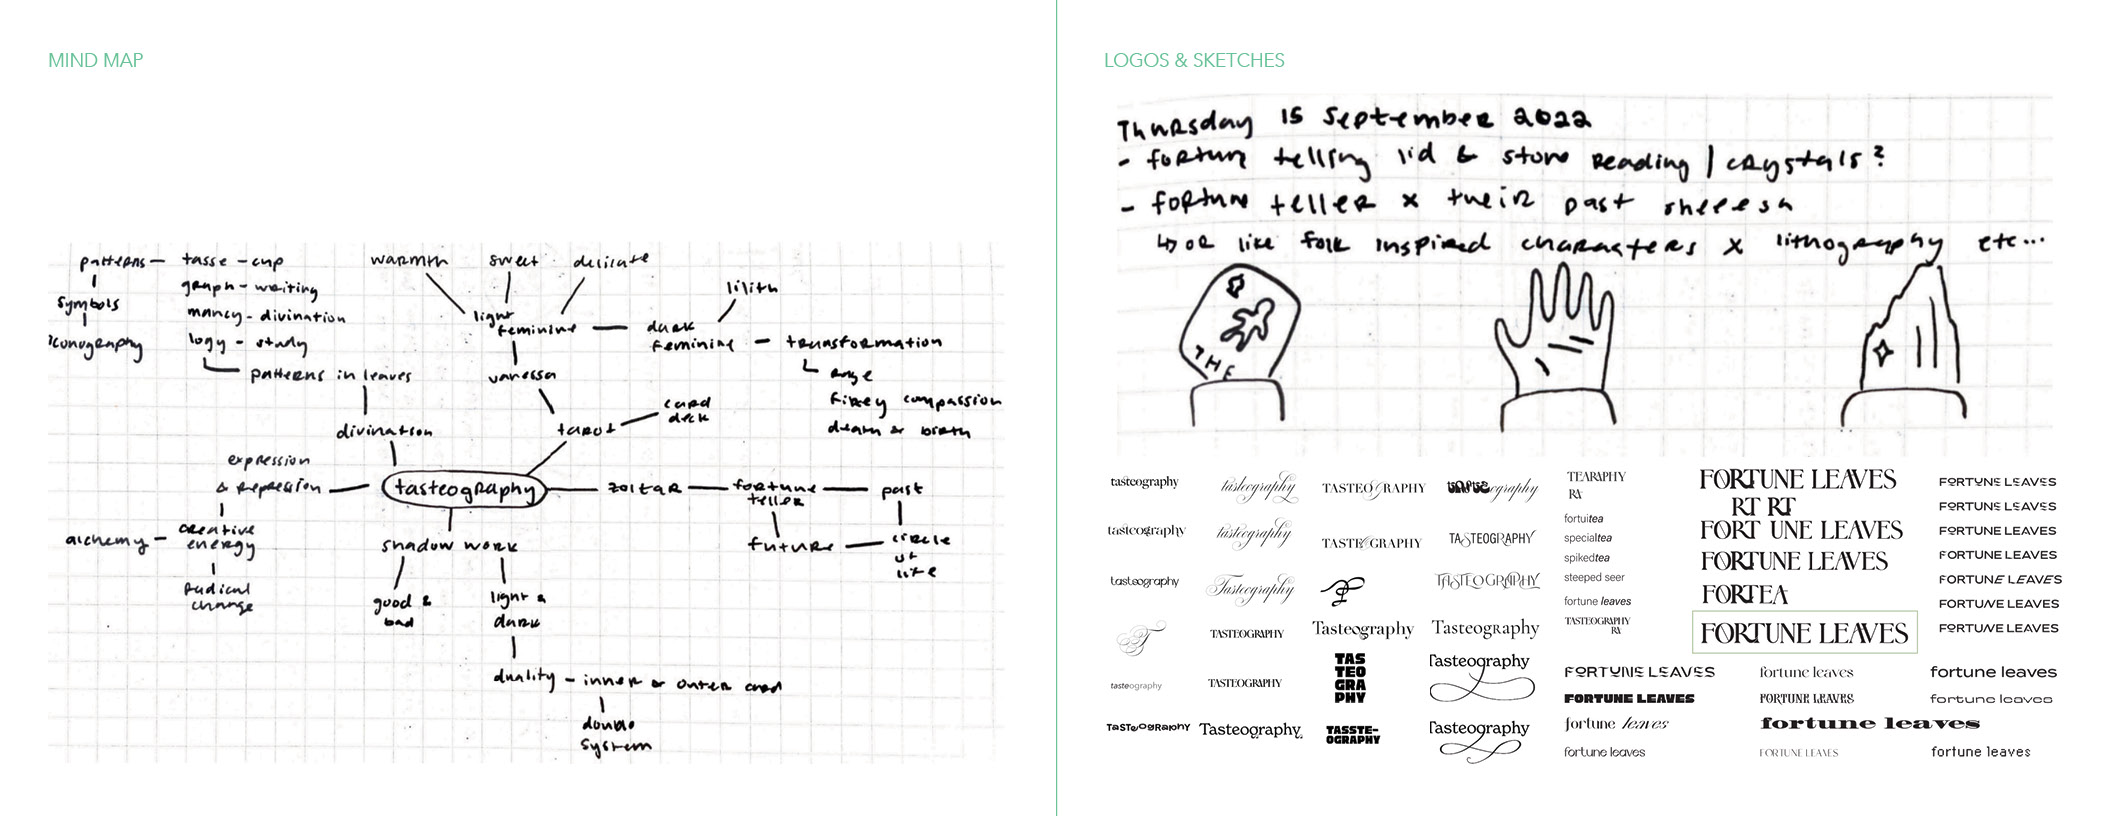 MIND MAP
patterns - tasse - cup
graph - writing
mancy - divination
logy - study
symbols
iconography
patterns in leaves
divination
warmth
sweet
delicate
light
feminine
dark
feminine
lilith
transformation
rage
firey compassion
death & birth
vanessa
tarot
card
deck
expression
& repression
tasteography
zoltar
fortune
teller
past
future
circle
of
life
alchemy -
creative
energy
radical
change
shadow work
good &
bad
light &
dark
duality - inner & outer
system
LOGOS & SKETCHES
Thursday 15 September 2022
- fortune telling lid & store reading / crystals?
- fortune teller x their past sheesh
↳ or like folk inspired characters x lithography etc...
THE
tasteography
tasteography
TASTEOGRAPHY
tasteography
TEARAPHY
RA
FORTUNE LEAVES
RT RT
FORTUNE LEAVES
FORTUNE LEAVES
tasteography
tasteography
TASTEOGRAPHY
TASTEOGRAPHY
fortuitea
specialtea
spikedtea
FORT UNE LEAVES
FORTUNE LEAVES
FORTUNE LEAVES
tasteography
Tasteography
TASTEOGRAPHY
steeped seer
fortune leaves
FORTUNE LEAVES
FORTEA
FORTUNE LEAVES
FORTUNE LEAVES
T
TASTEOGRAPHY
Tasteography
Tasteography
TASTEOGRAPHY
RA
FORTUNE LEAVES
FORTUNE LEAVES
tasteography
TASTEOGRAPHY
TAS
TEO
GRA
PHY
Tasteography
FORTUNE LEAVES
fortune leaves
fortune leaves
FORTUNE LEAVES
FORTUNE LEAVES
fortune leaves
TaSTeOGRapHY
Tasteography
TASSTE-
OGRAPHY
Tasteography
fortune leaves
fortune leaves
fortune leaves
FORTUNE LEAVES
fortune leaves